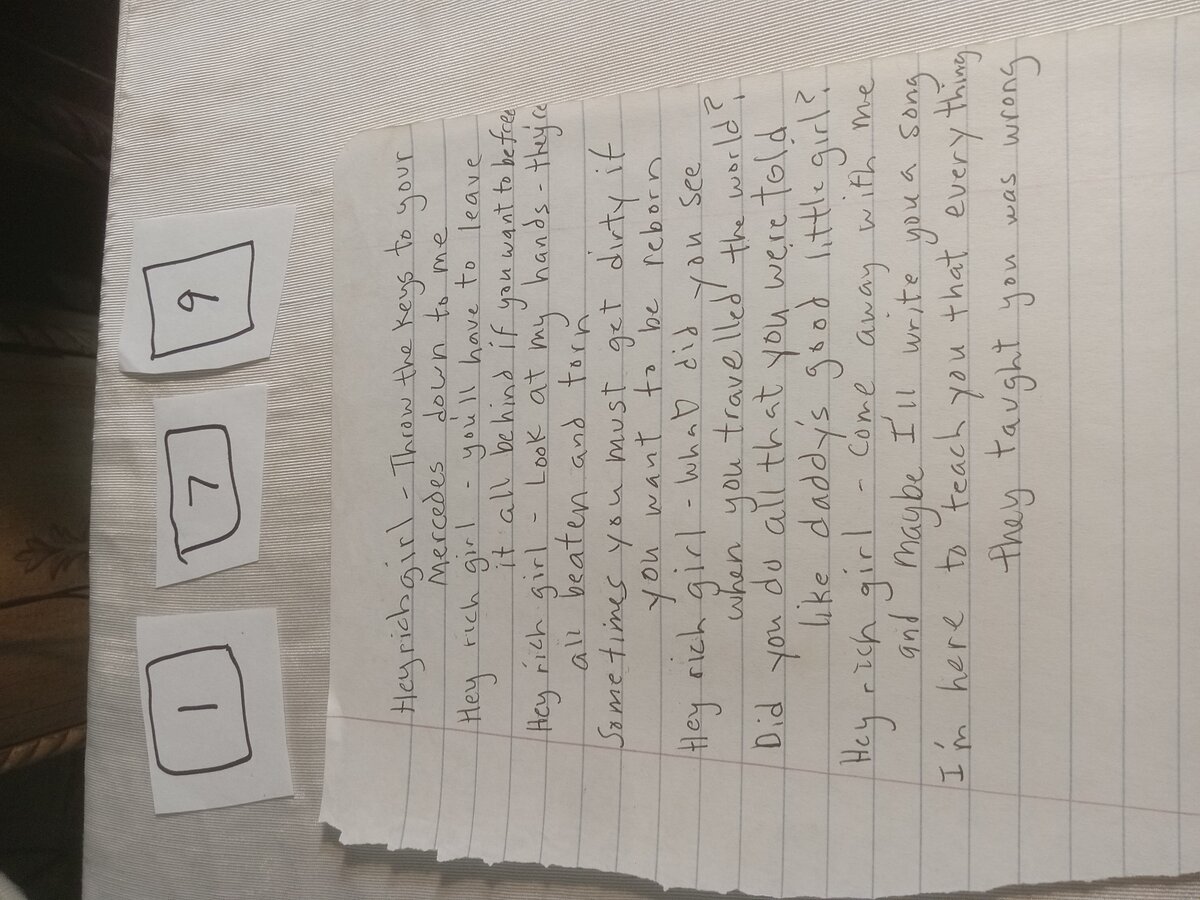 1 7 9
Hey rich girl - Throw the keys to your
Mercedes down to me
Hey rich girl - you'll have to leave
it all behind if you want to be free
Hey rich girl - Look at my hands - they're
all beaten and torn
Sometimes you must get dirty if
you want to be reborn
Hey rich girl - what did you see
when you travelled the world?
Did you do all that you were told
like daddy's good little girl?
Hey rich girl - come away with me
and maybe I'll write you a song
I'm here to teach you that every thing
they taught you was wrong